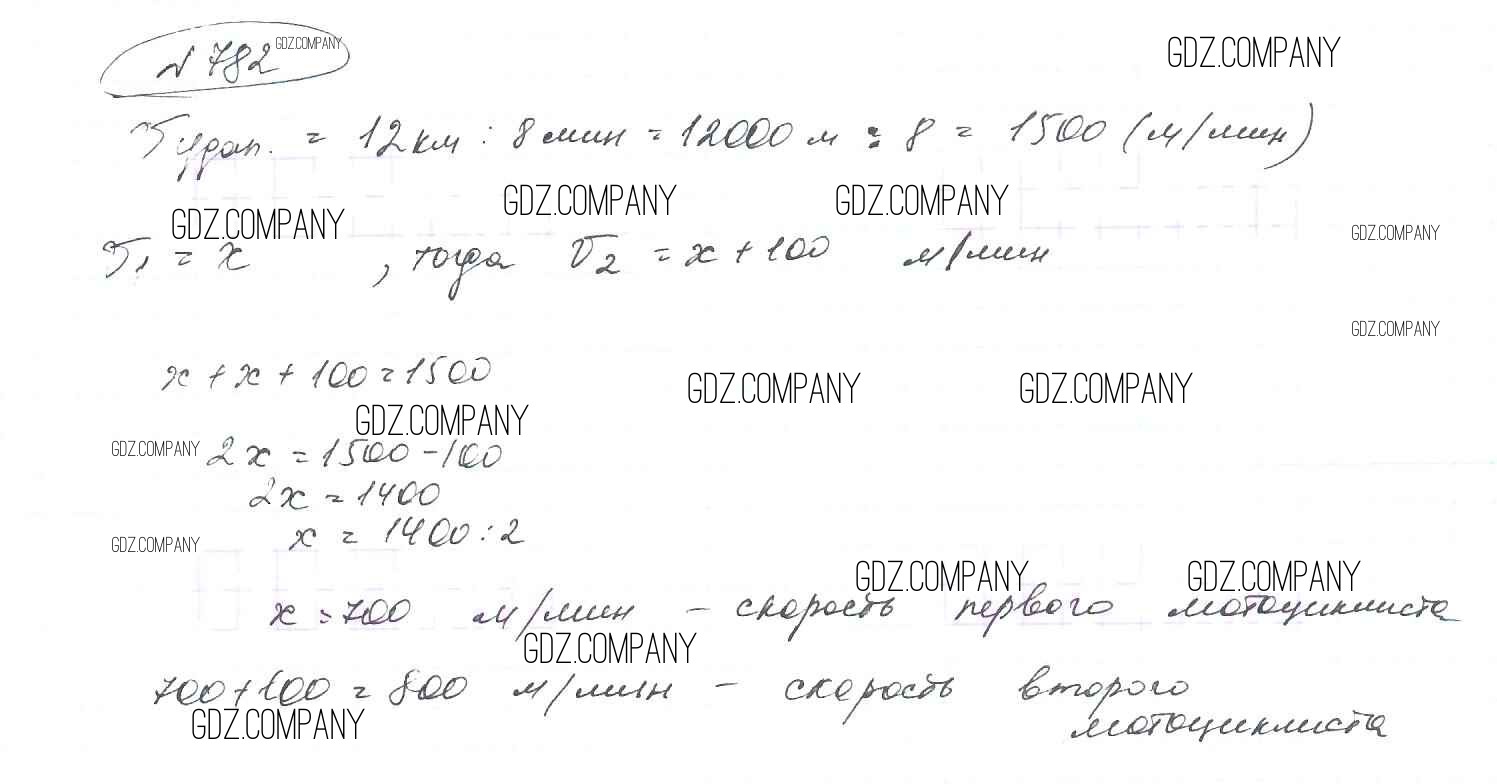 № 782 GDZ.COMPANY
GDZ.COMPANY
V удал. = 12 км : 8 мин = 12000 м : 8 = 1500 (м/мин)
GDZ.COMPANY GDZ.COMPANY GDZ.COMPANY
GDZ.COMPANY
V₁ = x , тогда V₂ = x + 100 м/мин
GDZ.COMPANY
x + x + 100 = 1500
GDZ.COMPANY GDZ.COMPANY GDZ.COMPANY
GDZ.COMPANY 2x = 1500 - 100
2x = 1400
x = 1400 : 2
GDZ.COMPANY
GDZ.COMPANY GDZ.COMPANY
x = 700 м/мин - скорость первого мотоциклиста
GDZ.COMPANY
700 + 100 = 800 м/мин - скорость второго
мотоциклиста
GDZ.COMPANY